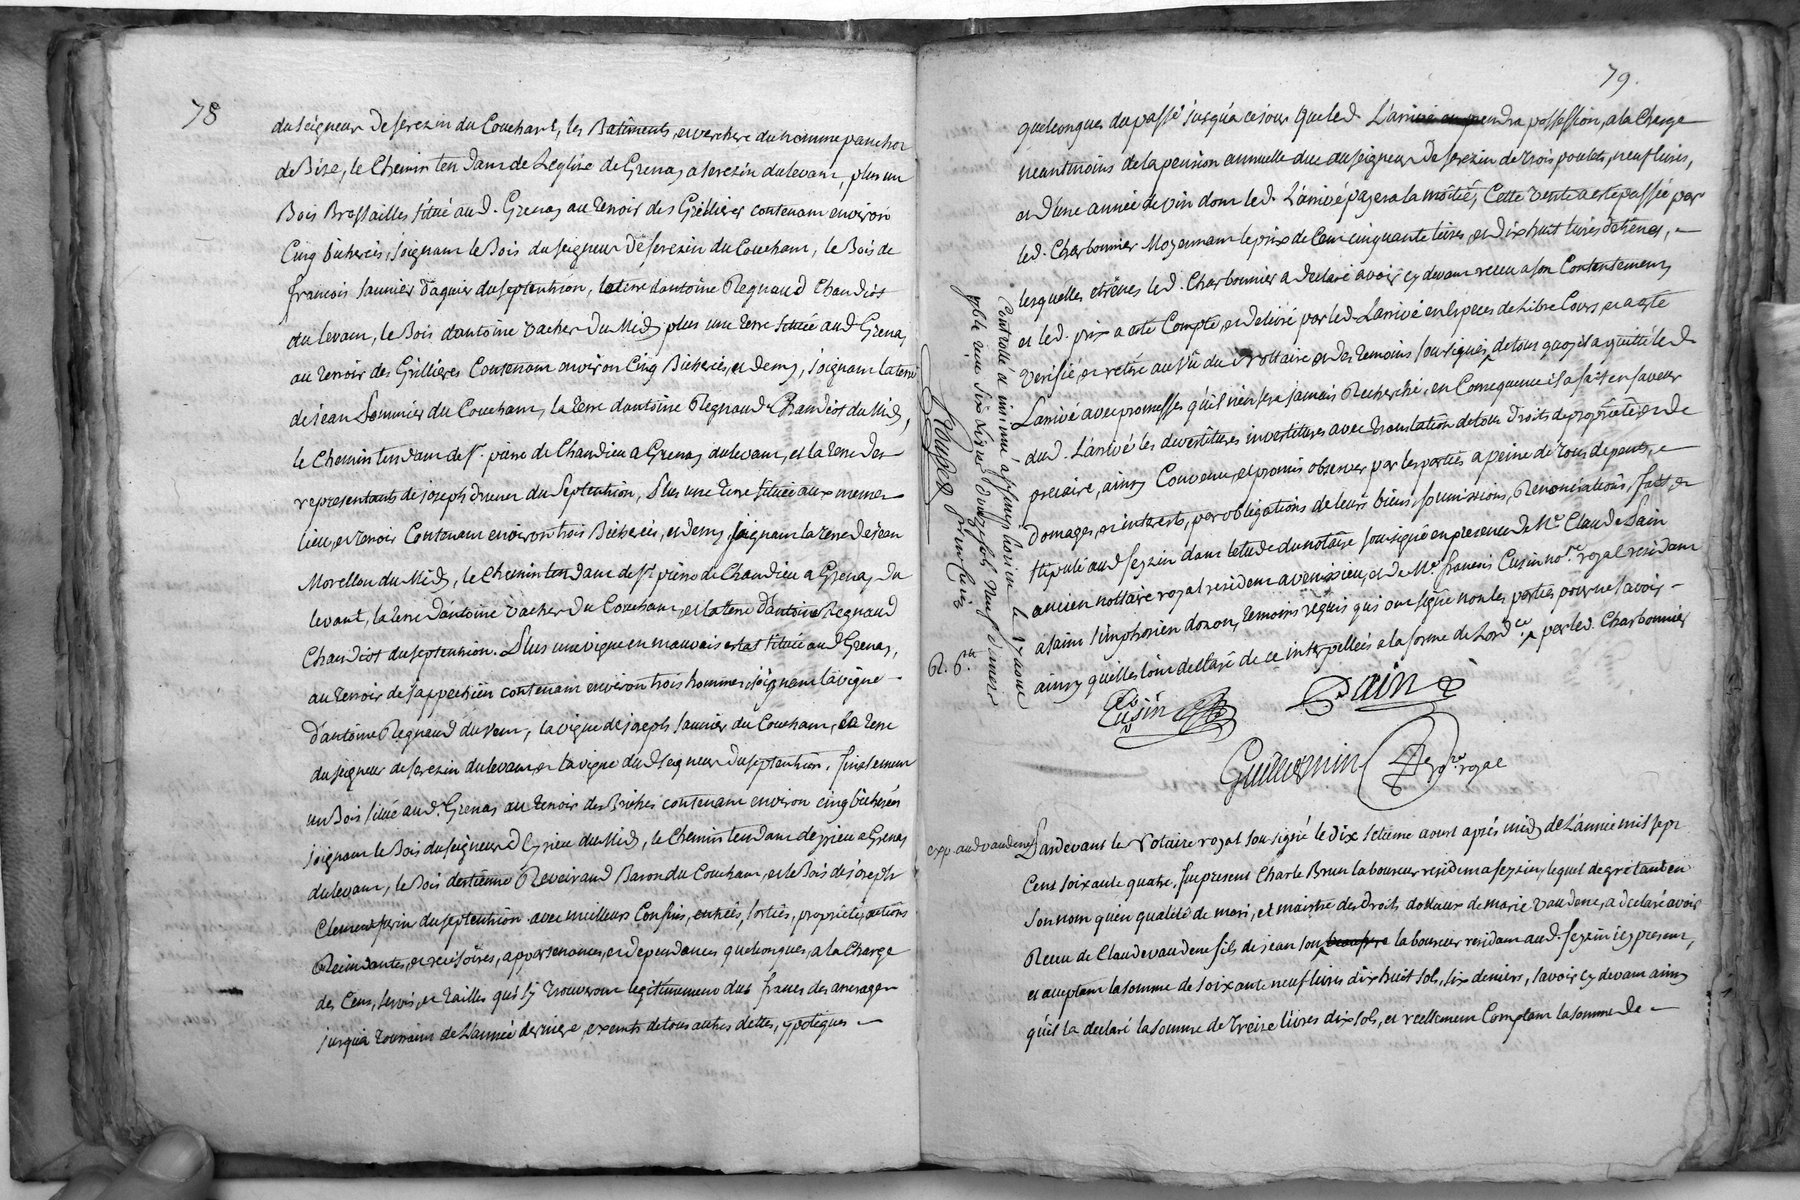 78
du seigneur de serezin du Couchant, les Batiments, et verchere du nomme panchon
de Bize, le Chemin tendant de L'eglize de Grenas a serezin du levant, plus un
Bois Brossailles situé aud. Grenas au terroir des Grillieres contenant environ
Cinq bicherées, joignant le Bois du seigneur de serezin du Couchant, le Bois de
francois saunier du septention, la terre d'antoine Regnaud Chandiot
du levant, le Bois d'antoine vacher du Midy plus une terre située aud Grenas
au terroir des Grillieres Contenant environ Cinq Bicherées, et demy, joignant la terre
de jean sommier du Couchant, la terre d'antoine Regnaud Chandiot du Midy,
le Chemin tendant de st. pierre de Chandieu a Grenas du levant, et la terre des
representants de joseph du septention, Plus une terre située aux memes
lieu, et terroir Contenant environ trois Bicherées, et demy, joignant la terre de jean
Morellon du Midy, le Chemin tendant de st. pierre de Chandieu a Grenas du
levant, la terre d'antoine vacher du Couchant, et la terre d'antoine Regnaud
Chandiot du septention. Plus une vigne en mauvais estat située aud Grenas,
au terroir de contenant environ trois hommes, joignant la vigne
d'antoine Regnaud du vent, la vigne de joseph saunier du Couchant, la terre
du seigneur de serezin du levant, et la vigne dud seigneur du septention. finalement
un Bois situé aud. Grenas au terroir des contenant environ cinq bicherées
joignant le Bois du seigneur du Midy, le Chemin tendant de a Grenas
du levant, le Bois d'estienne Reveirand Baron du Couchant, et le Bois de joseph
Clement perin du septention avec meilleurs Confins, entrées, sorties, proprietés, actions
Recindantes, et recisoires, appartenances, et dependances quelconques, a la Charge
des Cens, servis, et tailles qui s'y trouveront legitimement dub francs des arrerages
jusqu'a toussains de L'année derniere, exempts de tous autres dettes, ypoteques
79.
quelconques du passé jusqu'a ce jour que led. L'arrivé prendra possession, a la Charge
neantmoins de la pension annuelle due au seigneur de serezin de trois poulets, neuf livres,
et d'une année de vin dont led. L'arrivé payera la moitié, Cette vente a esté passée par
led. Charbonnier Moyennant le prix de Cent cinquante livres, et dix huit livres d'etrenes,
lesquelles etrenes led. Charbonnier a declaré avoir cy devant receu a son Contentement
et led. prix a esté Compté, et delivré par led Larrivé en especes de Libre Cours, et a esté
verifié, et retiré au vû du Nottaire et des temoins soussignés, de tous quoy il a quitté led
Larrivé avec promesses qu'il n'en sera jamais Recherché, en Consequence il a fait en faveur
dud. L'arrivé les devestitures investitures avec translation de tous droits de proprieté, et de
precaire, ainsy Convenu, et promis observer par les parties a peine de tous depents,
domages, et interests, par obligations de leurs biens, soumissions, Renonciations, fait et
stipulé aud feyzin dans l'etude du notaire soussigné en presence de Me. Claude Sain
ancien nottaire royal resident a venissieu, et de Me. francois Cusin nore. royal resident
a saint simphorien dozon, temoins requis qui ont signé non les parties pour ne savoir
ainsy qu'elles l'ont declaré de ce interpellées a la forme de Lordce. par led. Charbonnier
Cusin
Sain
Guillermin
nore. royal
Controllé et insinué a st simphorien le 17 aoust
Rt. 6
exp. aud vaudene
Pardevant le Notaire royal soussigné le dix setieme aoust aprés midy de L'année mil sept
Cent soixante quatre, fut present Charle Brun laboureur resident a feyzin, lequel de gré tant en
son nom qu'en qualité de mari, et maistre des droits dotaux de marie vaudene, a declaré avoir
Receu de Claude vaudene fils de jean son laboureur resident aud. feyzin icy present,
et acceptant la somme de soixante neuf livres dix huit sols, six deniers, savoir cy devant ainsy
qu'il l'a declaré la somme de treize livres dix sols, et reellement Comptant la somme de